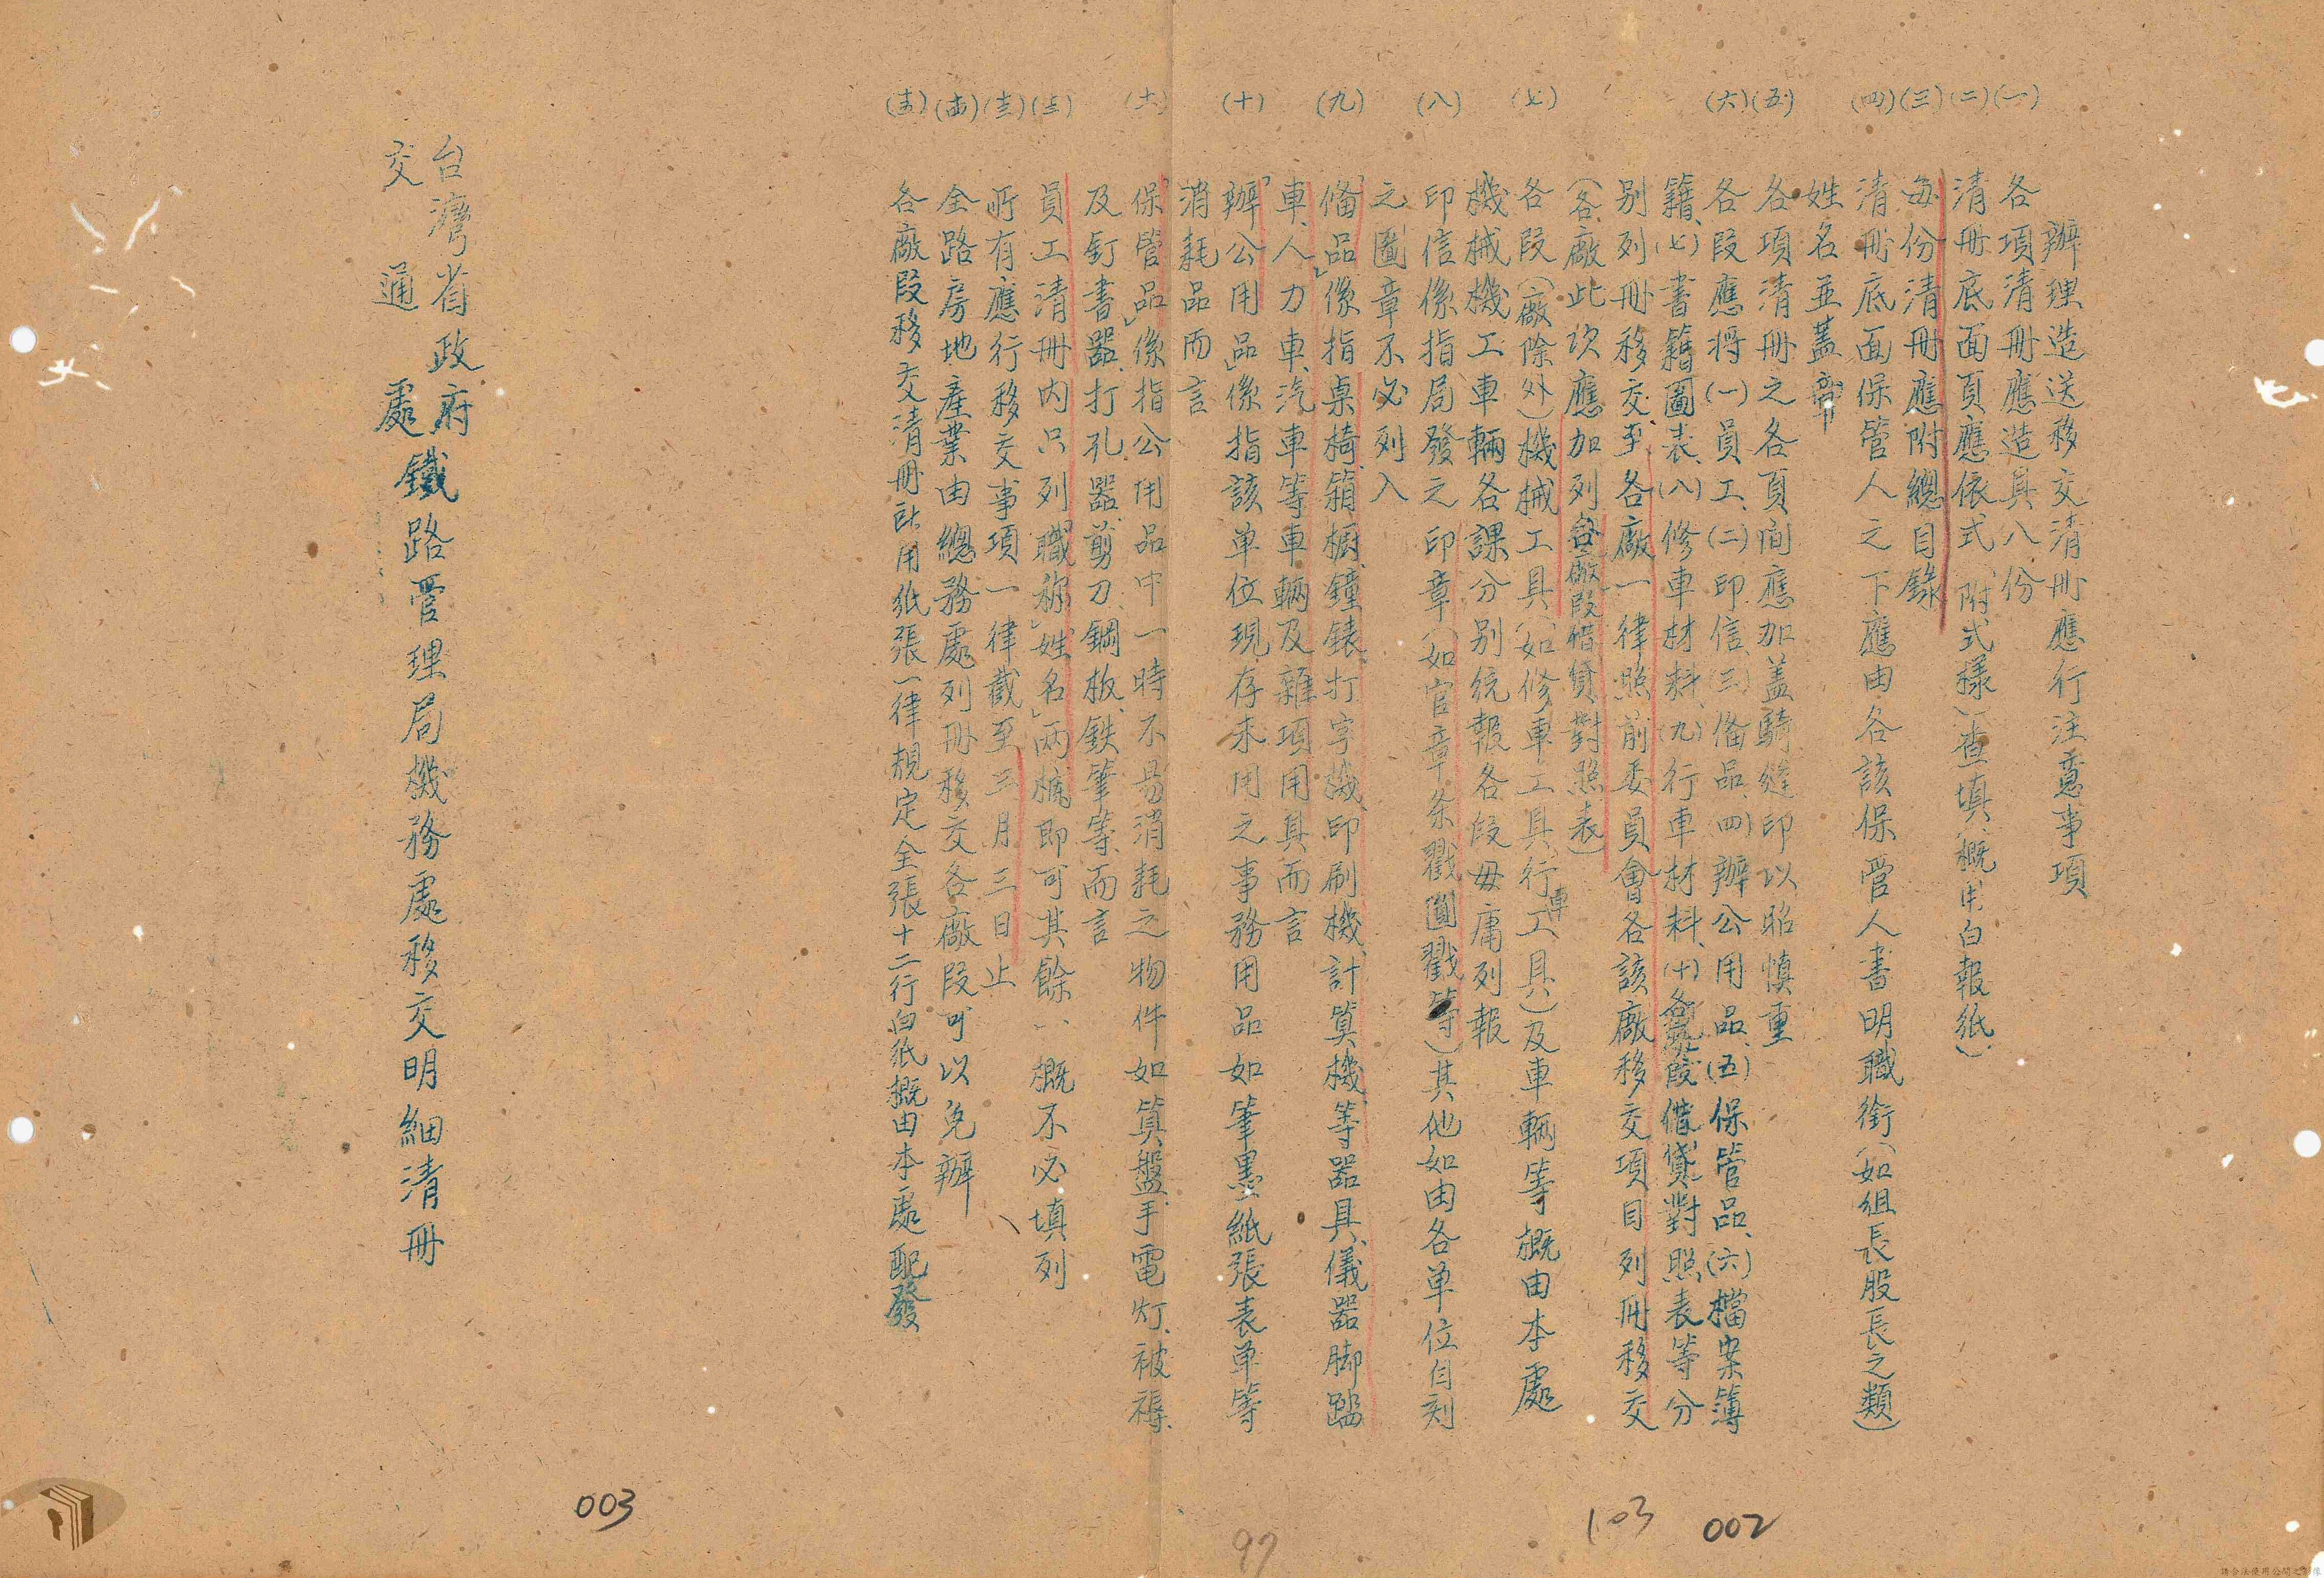 辦理造送移交清冊應行注意事項
(一) 各項清冊應造具八份
(二) 清冊底面頁應依式(附式樣)查填(概用白報紙)
(三) 每份清冊應附總目錄
(四) 清冊底面保管人之下應由各該保管人書明職銜(如組長股長之類)
姓名並蓋章
(五) 各項清冊之各頁間應加盖騎縫印以昭慎重
(六) 各段應將(一)員工、(二)印信、(三)俻品、(四)辦公用品、(五)保管品、(六)檔案簿
籍、(七)書籍圖表、(八)修車材料、(九)行車材料、(十)各廠段借貸對照表等分
别列冊移交至各廠一律照前委員會各該廠移交項目列冊移交
(各廠此次應加列各廠段借貸對照表)
(七) 各段(廠除外)機械工具(如修車工具行車工具)及車輛等概由本處
機械機工車輛各課分别統報各段毋庸列報
(八) 印信係指局發之印章(如官章条戳圓戳等)其他如由各单位自刻
之圖章不必列入
(九) 「俻品」係指桌椅、箱櫥、鐘錶、打字機、印刷機、計算機等器具、儀器、脚踏
車、人力車、汽車等車輛及雜項用具而言
(十) 「辦公用品」係指該单位現存未用之事務用品如筆墨紙張表单等
消耗品而言
(十一) 「保管品」係指公用品中一時不易消耗之物件如算盤、手電灯、被褥、
及釘書器、打孔器、剪刀、鋼板、鉄筆等而言
(十二) 員工清冊内只列「職称」「姓名」两欄即可其餘一概不必填列
(十三) 所有應行移交事項一律截至三月三日止
(十四) 全路房地產業由總務處列冊移交各廠段可以免辦
(十五) 各廠段移交清冊所用紙張一律規定全張十二行白紙概由本處配發
台灣省政府
交通處
鐵路管理局機務處移交明細清冊
003
97
103
002